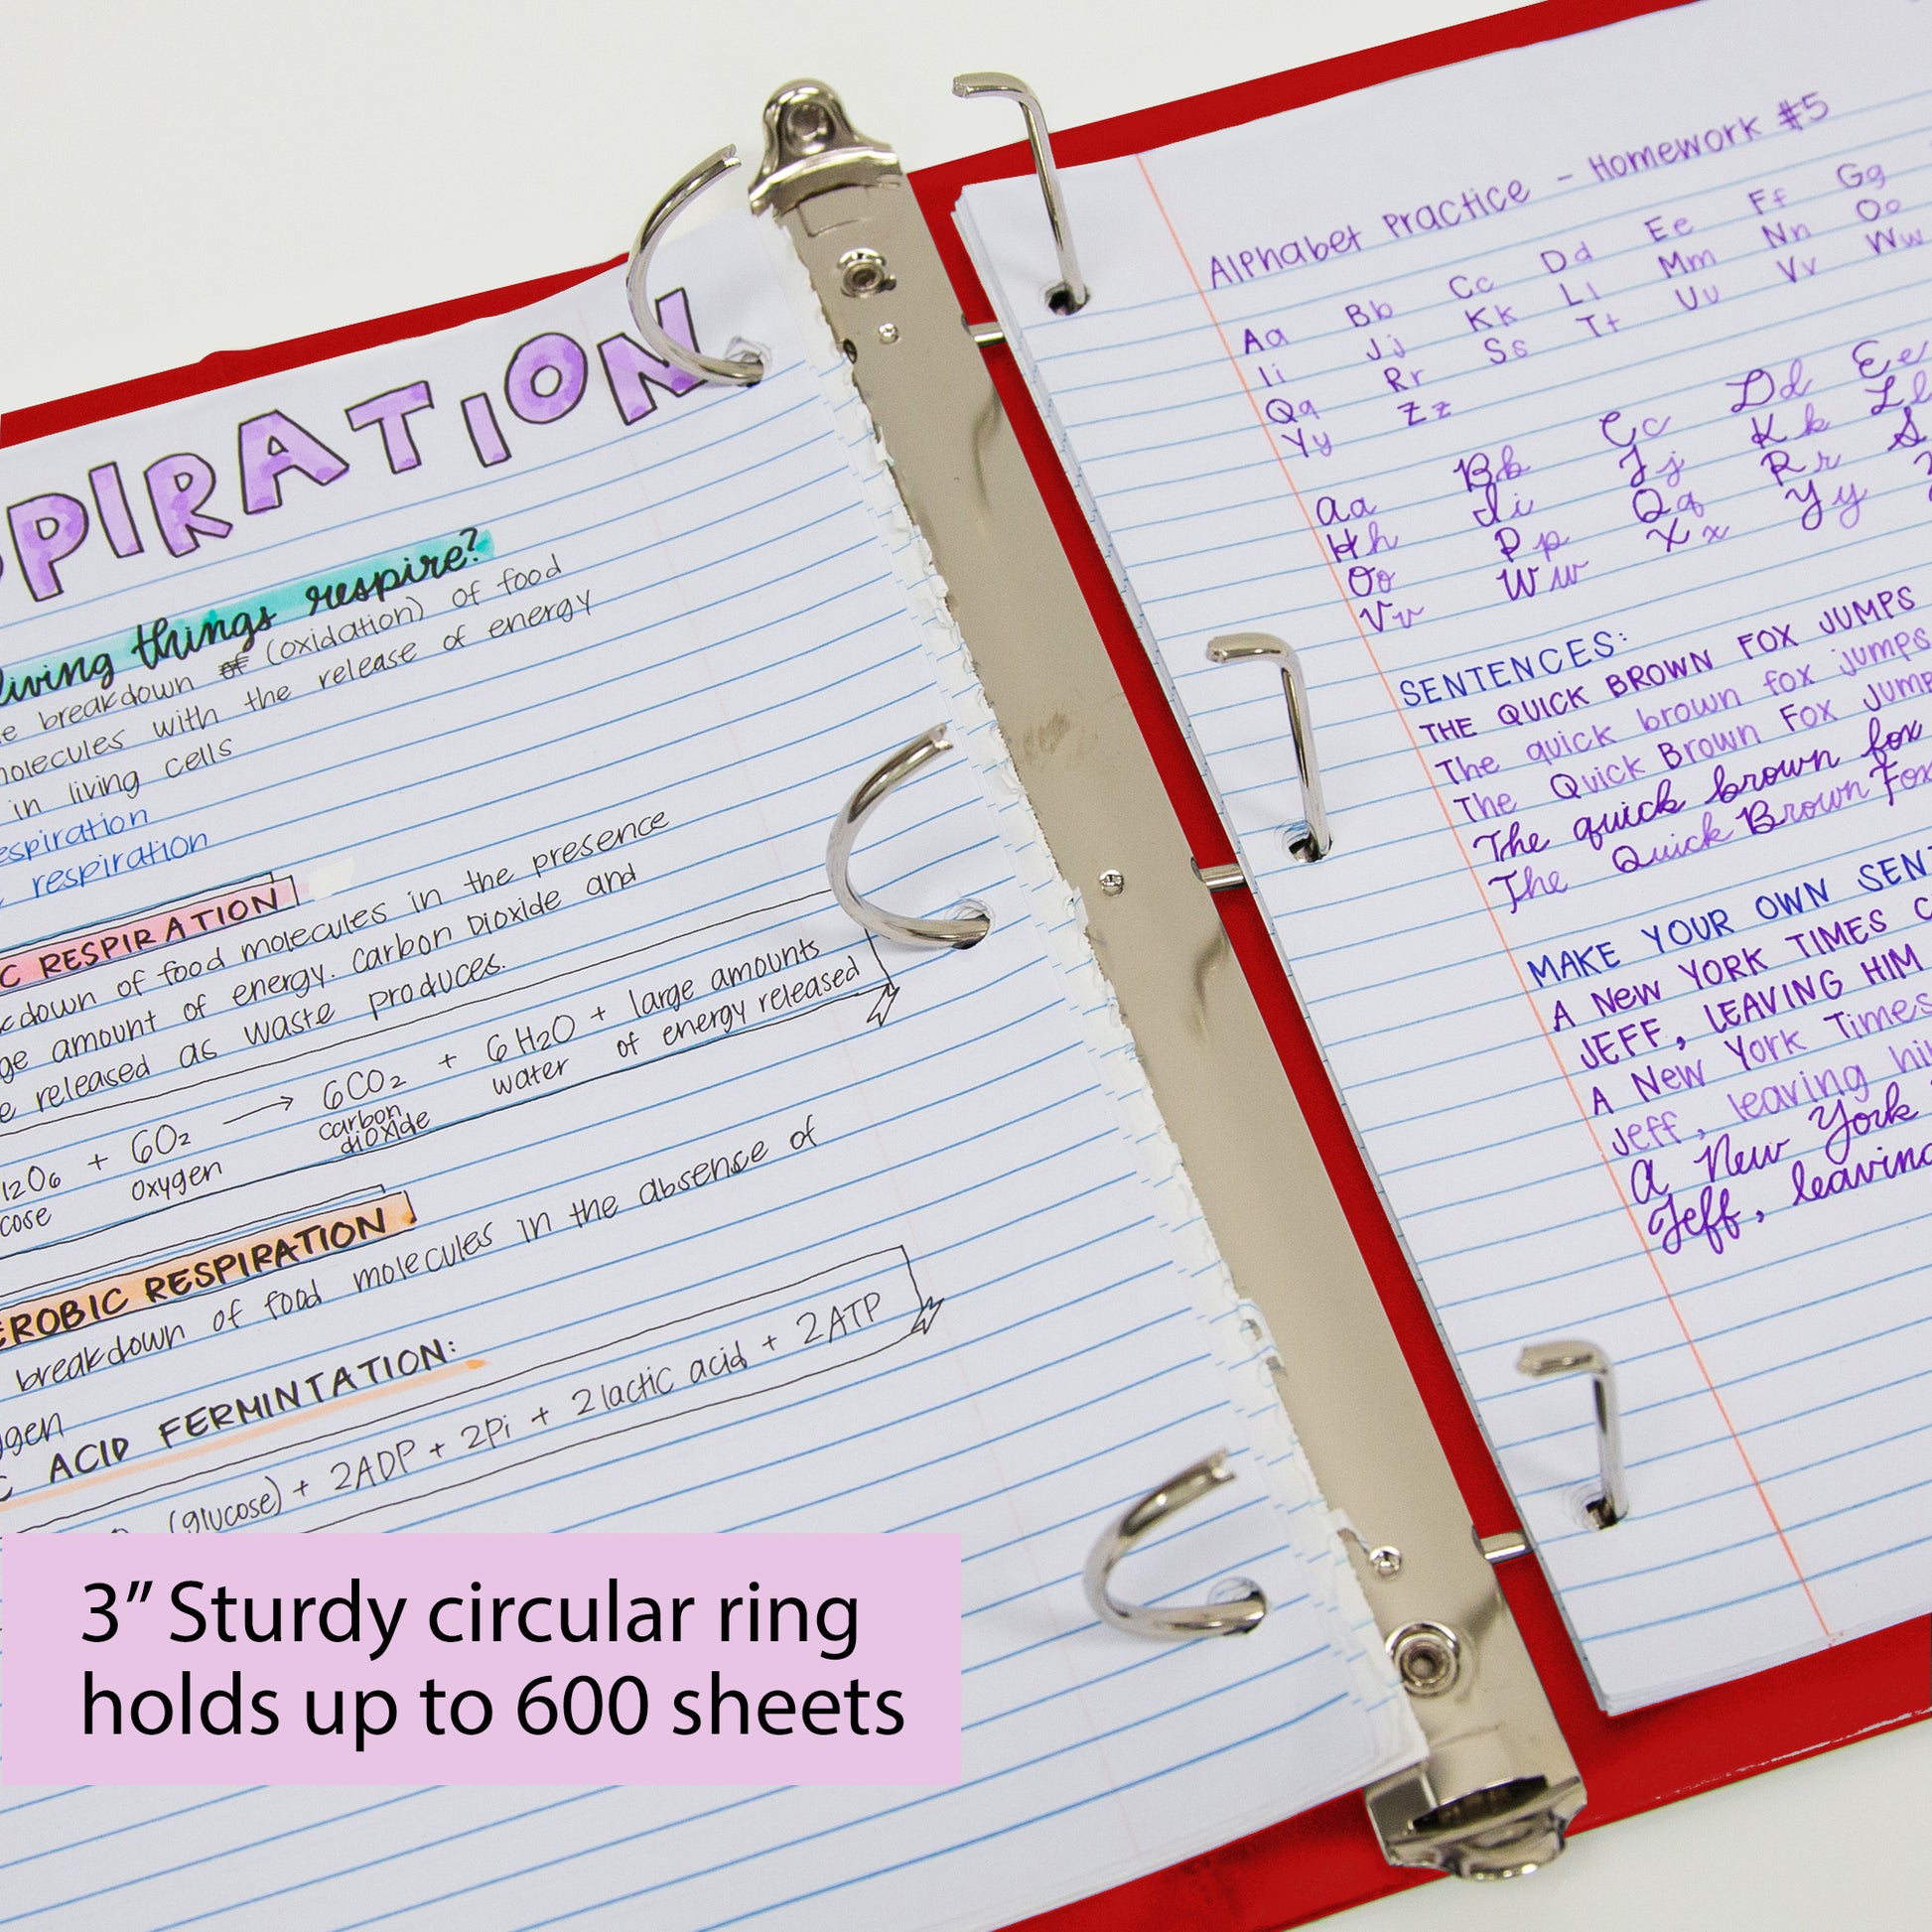 PIRATION
living things respire?
breakdown of (oxidation) of food
molecules with the release of energy
in living cells
respiration
respiration
C RESPIRATION
down of food molecules in the presence
amount of energy. Carbon Dioxide and
released as waste produces.
12O6 + 6O2 → 6CO2 + 6H2O + large amounts
cose oxygen carbon dioxide water of energy released
EROBIC RESPIRATION
breakdown of food molecules in the absence of
ACID FERMINTATION:
(glucose) + 2ADP + 2Pi + 2lactic acid + 2ATP
3” Sturdy circular ring
holds up to 600 sheets
Alphabet Practice - Homework #5
Aa Bb Cc Dd Ee Ff Gg
Ii Jj Kk Ll Mm Nn Oo
Qq Rr Ss Tt Uu Vv Ww
Yy Zz
Aa Bb Cc Dd Ee
Hh Ii Jj Kk Ll
Oo Pp Qq Rr S
Vv Ww Xx Yy
SENTENCES:
THE QUICK BROWN FOX JUMPS
The quick brown fox jumps
The Quick Brown Fox Jump
The quick brown fox
The Quick Brown Fox
MAKE YOUR OWN SENT
A NEW YORK TIMES C
JEFF, LEAVING HIM
A New York Times
Jeff, leaving hi
A New York
Jeff, leaving